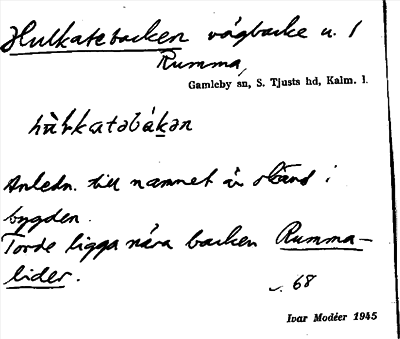 Hulkatebacken vägbacke u. 1
Rumma,
Gamleby sn, S. Tjusts hd, Kalm. l.
hùlkatəbákən
Anledn. till namnet är okänd i
bygden.
Torde ligga nära backen Rumma-
lider.
68
Ivar Modéer 1945